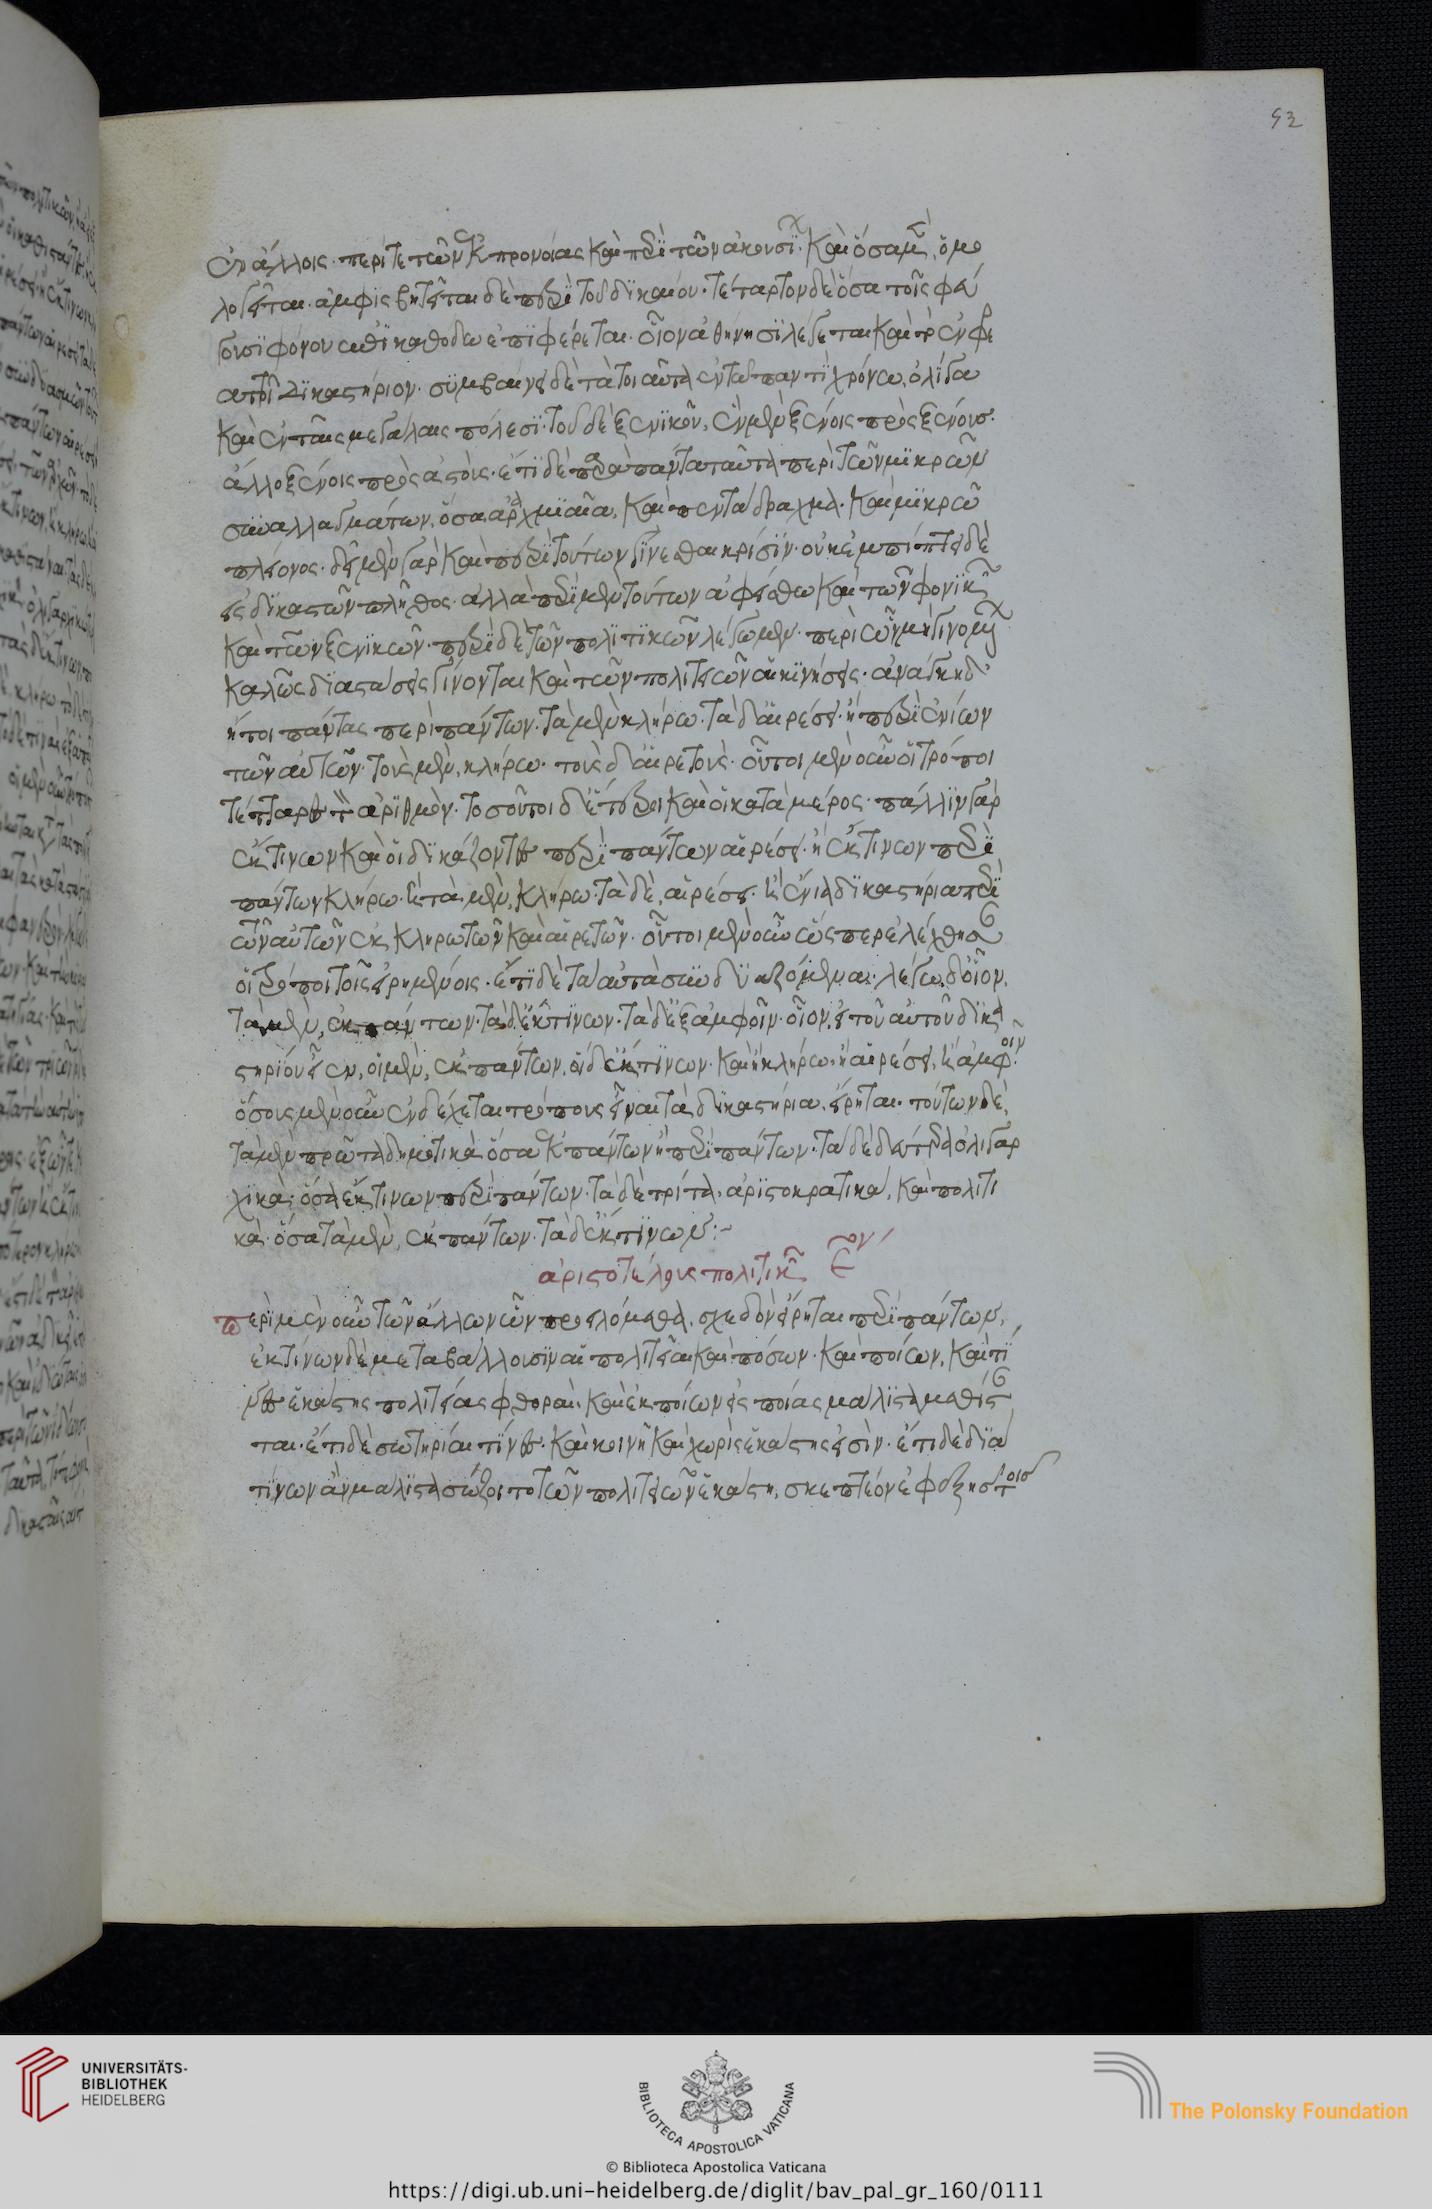 53
ἐν ἄλλοις· περί τε τῶν ἐκ προνοίας καὶ περὶ τῶν ἀκουσίων· καὶ ὅσα μὲν, ὁμο
λογεῖται· ἀμφισβητεῖται δὲ περὶ τοῦ δικαίου· τέταρτον δὲ ὅσα τοῖς φεύ
γουσι φόνου ἐπὶ καθόδω ἐπιφέρεται· οἷον ἀθήνησι λέγεται καὶ τὸ ἐν φρε
αττοῖ δικαστήριον· συμβαίνει δὲ τὰ τοιαῦτα ἐν τῶ παντὶ χρόνω, ὀλίγα
καὶ ἐν ταῖς μεγάλαις πόλεσι· τοῦ δὲ ξενικοῦ, ἓν μὲν ξένοις πρὸς ξένους·
ἄλλο ξένοις πρὸς ἀστούς· ἔτι δὲ παρὰ πάντα ταῦτα περὶ τῶν μικρῶν
συναλλαγμάτων, ὅσα δραχμιαῖα, καὶ πεντάδραχμα· καὶ μικρῶ
πλέονος· δεῖ μὲν γὰρ καὶ περὶ τούτων γίνεσθαι κρίσιν· οὐκ ἐμπίπτει δὲ
εἰς δικαστῶν πλῆθος· ἀλλὰ περὶ μὲν τούτων ἀφείσθω καὶ τῶν φονικῶν
καὶ τῶν ξενικῶν· περὶ δὲ τῶν πολιτικῶν λέγωμεν· περὶ ὧν μὴ γινομένων
καλῶς διαστάσεις γίνονται καὶ τῶν πολιτειῶν αἱ κινήσεις· ἀνάγκη δ'
ἤτοι πάντας περὶ πάντων· τὰ μὲν κλήρω· τὰ δ' αἱρέσει· ἢ περὶ ἐνίων
τῶν αὐτῶν· τοὺς μὲν, κλήρω· τοὺς δ' αἱρετούς· οὗτοι μὲν οὖν οἱ τρόποι
τέτταρες τὸν ἀριθμόν· τοσοῦτοι δ' ἕτεροι καὶ οἱ κατὰ μέρος· πάλιν γὰρ
ἐκ τινῶν καὶ οἱ δικάζοντες περὶ πάντων αἱρέσει· ἢ ἐκ τινῶν περὶ
πάντων κλήρω· ἢ τὰ μὲν, κλήρω· τὰ δὲ, αἱρέσει· ἢ ἔνια δικαστήρια περὶ
τῶν αὐτῶν ἐκ κληρωτῶν καὶ αἱρετῶν· οὗτοι μὲν οὖν ὥσπερ ἐλέχθησαν
οἱ τρόποι τοῖς εἰρημένοις· ἔτι δὲ τὰ αὐτὰ συνδυαζόμενα· λέγω δ' οἷον,
τὰ μὲν, ἐκ πάντων· τὰ δ' ἐκ τινῶν· τὰ δ' ἐξ ἀμφοῖν· οἷον, εἰ τοῦ αὐτοῦ δικα
στηρίου εἶεν, οἱ μὲν, ἐκ πάντων, οἱ δ' ἐκ τινῶν· καὶ ἢ κλήρω· ἢ αἱρέσει, ἢ ἀμφοῖν·
ὅσους μὲν οὖν ἐνδέχεται τρόπους εἶναι τὰ δικαστήρια, εἴρηται· τούτων δὲ,
τὰ μὲν πρῶτα δημοτικὰ ὅσα ἐκ πάντων ἢ περὶ πάντων· τὰ δὲ δεύτερα ὀλιγαρ
χικά· ὅσα ἐκ τινῶν περὶ πάντων· τὰ δὲ τρίτα, ἀριστοκρατικὰ, καὶ πολιτι
κὰ· ὅσα τὰ μὲν, ἐκ πάντων· τὰ δ' ἐκ τινῶν:-
ἀριστοτέλους πολιτικῶν Ε^ον
περὶ μὲν οὖν τῶν ἄλλων ὧν προειλόμεθα, σχεδὸν εἴρηται περὶ πάντων,
ἐκ τίνων δὲ μεταβάλλουσιν αἱ πολιτεῖαι καὶ πόσων· καὶ ποίων, καὶ τί
νες ἑκάστης πολιτείας φθοραὶ· καὶ ἐκ ποίων εἰς ποίας μάλιστα μεθίσταν
ται· ἔτι δὲ σωτηρίαι τίνες· καὶ κοινῆ καὶ χωρὶς ἑκάστης εἰσὶν· ἔτι δὲ διὰ
τίνων ἂν μάλιστα σώζοιτο τῶν πολιτειῶν ἑκάστη, σκεπτέον ἐφεξῆς τοῖς
UNIVERSITÄTS-
BIBLIOTHEK
HEIDELBERG
BIBLIOTECA APOSTOLICA VATICANA
© Biblioteca Apostolica Vaticana
The Polonsky Foundation
https://digi.ub.uni-heidelberg.de/diglit/bav_pal_gr_160/0111